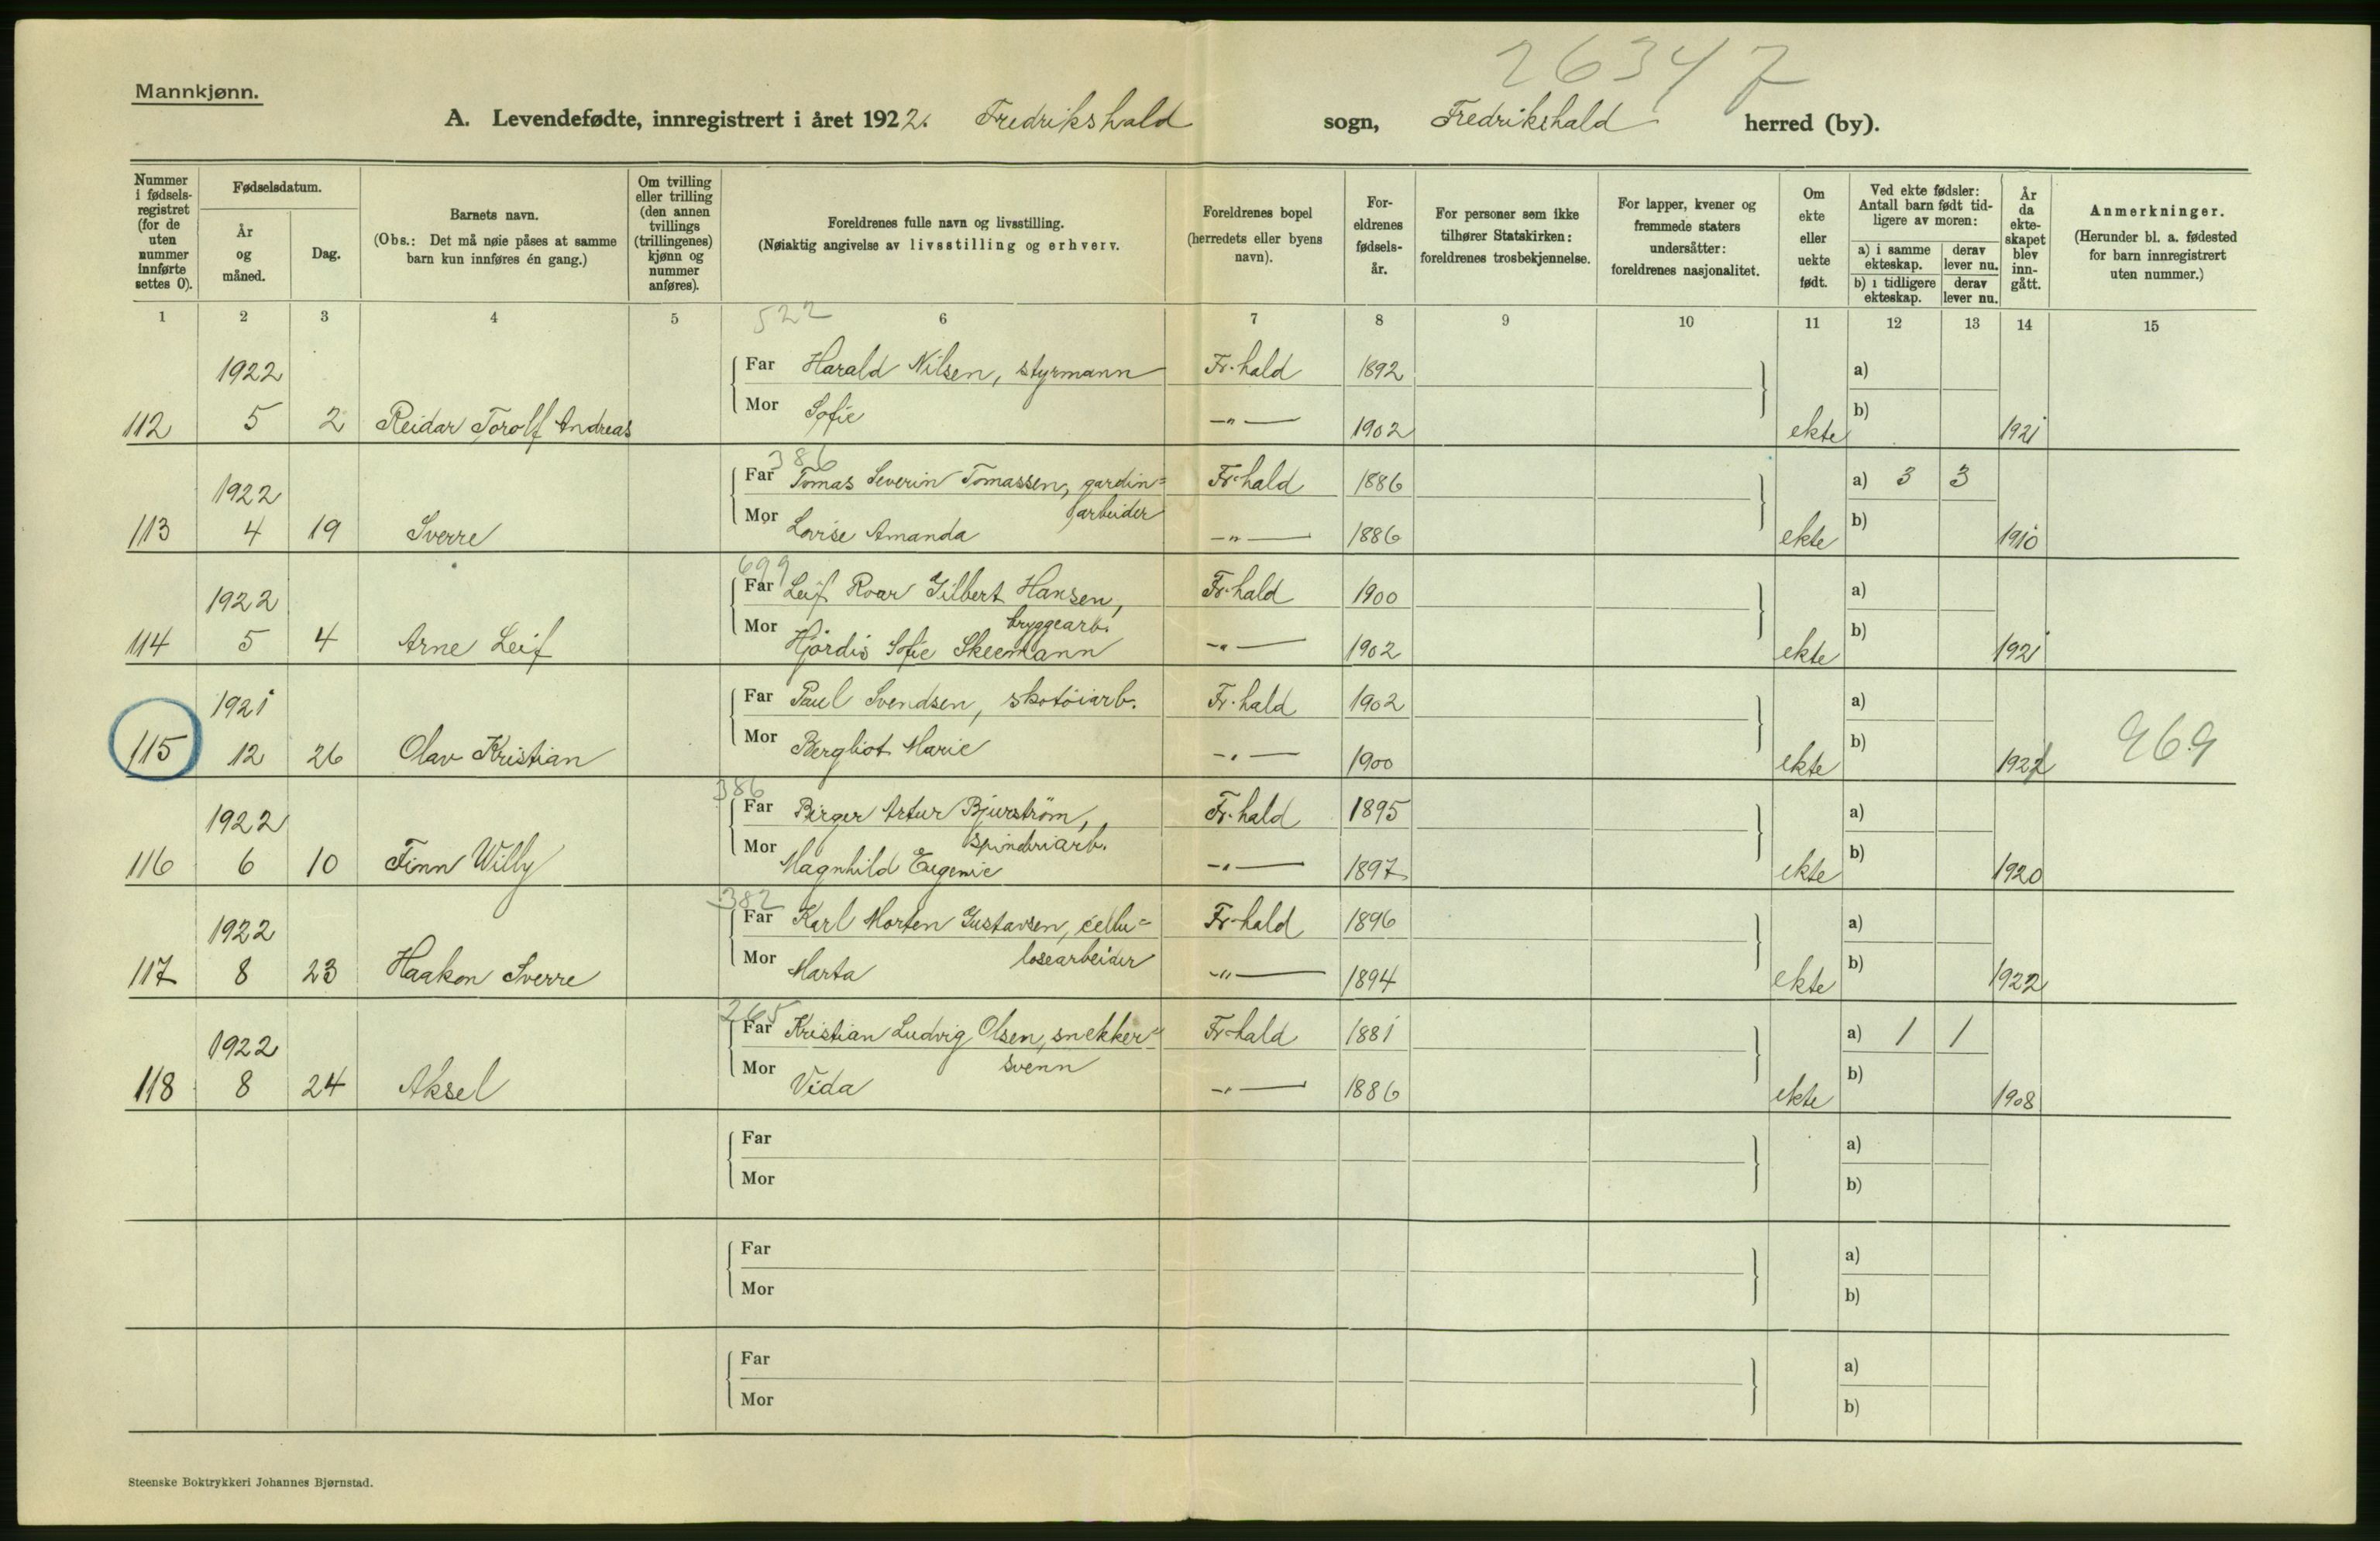 26347
Mannkjønn.
A. Levendefødte, innregistrert i året 1922. Fredrikshald sogn, Fredrikshald herred (by).
Nummer i fødsels-registret (for de uten nummer innførte settes 0).
Fødselsdatum.
År og måned.
Dag.
Barnets navn.
(Obs.: Det må nøie påses at samme barn kun innføres én gang.)
Om tvilling eller trilling (den annen tvillings (trillingenes) kjønn og nummer anføres).
Foreldrenes fulle navn og livsstilling.
(Nøiaktig angivelse av livsstilling og erhverv.
Foreldrenes bopel (herredets eller byens navn).
For-eldrenes fødsels-år.
For personer som ikke tilhører Statskirken: foreldrenes trosbekjennelse.
For lapper, kvener og fremmede staters undersåtter: foreldrenes nasjonalitet.
Om ekte eller uekte født.
Ved ekte fødsler: Antall barn født tid-ligere av moren:
a) i samme ekteskap.
derav lever nu.
b) i tidligere ekteskap.
derav lever nu.
År da ekte-skapet blev inn-gått.
Anmerkninger.
(Herunder bl. a. fødested for barn innregistrert uten nummer.)
1 2 3 4 5 6 7 8 9 10 11 12 13 14 15
522
1922 Far Harald Nilsen, styrmann Fr.hald 1892 a)
112 5 2 Reidar Torolf Andreas Mor Sofie -"- 1902 ekte b) 1921
386
1922 Far Tomas Severin Tomassen, gardin= Fr.hald 1886 a) 3 3
arbeider
113 4 19 Sverre Mor Lovise Amanda -"- 1886 ekte b) 1910
699
1922 Far Leif Roar Gilbert Hansen, Fr.hald 1900 a)
bryggearb.
114 5 4 Arne Leif Mor Hjördis Sofie Skeemann -"- 1902 ekte b) 1921
1921 Far Paul Svendsen, skotöiarb. Fr.hald 1902 a)
115 12 26 Olav Kristian Mor Bergliot Marie -"- 1900 ekte b) 1921 969
386
1922 Far Birger Artur Bjurström, Fr.hald 1895 a)
spinderiarb.
116 6 10 Finn Willy Mor Magnhild Eugenie -"- 1897 ekte b) 1920
382
1922 Far Karl Morten Gustavsen, cellu= Fr.hald 1896 a)
losearbeider
117 8 23 Haakon Sverre Mor Marta -"- 1894 ekte b) 1922
265
1922 Far Kristian Ludvig Olsen, snekker= Fr.hald 1881 a) 1 1
svenn
118 8 24 Aksel Mor Vida -"- 1886 ekte b) 1908
Far a)
Mor b)
Far a)
Mor b)
Far a)
Mor b)
Steenske Boktrykkeri Johannes Bjørnstad.